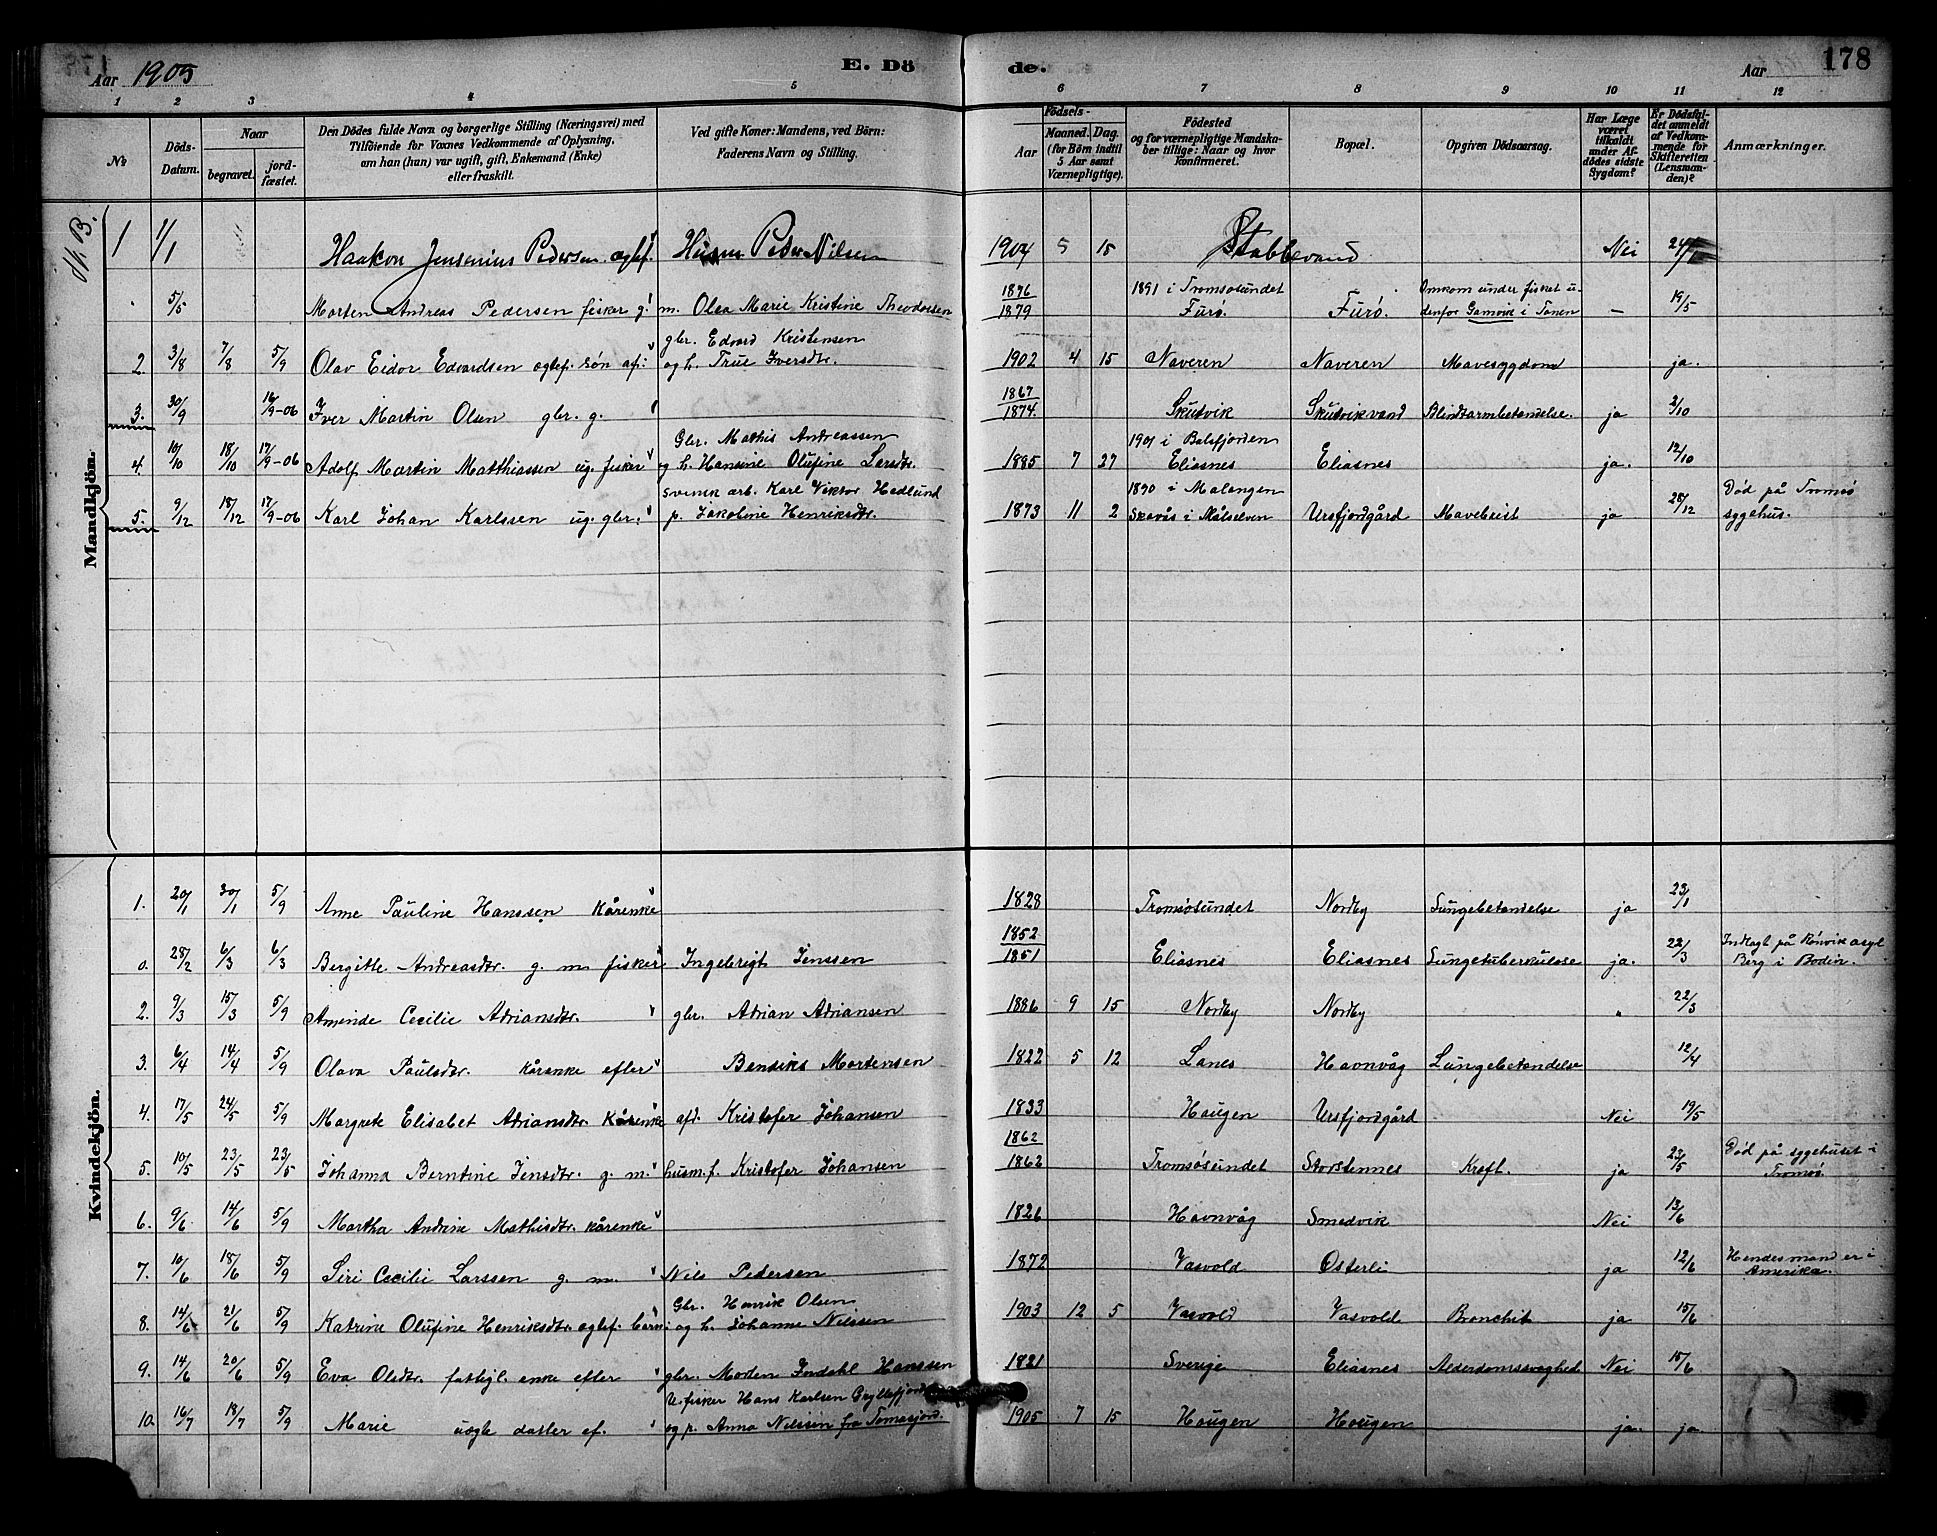 Aar 1905
E. Dö
de.
Aar
178
1 2 3 4 5 6 7 8 9 10 11 12
№
Döds-Datum.
Naar
begravet.
jord-fæstet.
Den Dödes fulde Navn og borgerlige Stilling (Næringsvei) med
Tilföiende for Voxnes Vedkommende af Oplysning,
om han (hun) var ugift, gift, Enkemand (Enke)
eller fraskilt.
Ved gifte Koner: Mandens, ved Börn:
Faderens Navn og Stilling.
Födsels-
Aar
Maaned. Dag.
(for Börn indtil
5 Aar samt
Værnepligtige).
Födested
og for værnepligtige Mandska-
ber tillige: Naar og hvor
konfirmeret.
Bopæl.
Opgiven Dödsaarsag.
Har Læge
været
tilkaldt
under Af-
dödes sidste
Sygdom?
Er Dödsfal-
det anmeldt
af Vedkom-
mende for
Skifteretten
(Lensman-
den)?
Anmærkninger.
Mandkjön.
1 1/1 Haakon Jensenius Pedersen ægtef. Husm Peder Nilsen 1904 5 15 Stabbevand Nei 24/1
5/5 Morten Andreas Pedersen fisker g. m. Olea Marie Kristine Theodorsen 1876/1879 1891 i Tromsøsundet Furø. Furø. Omkom under fisket udenfor Gamvik i Tanen — 19/5
2. 3/8 7/8 5/9 Olav Eidor Edvardsen ægtef. søn af: gbr. Edvard Kristensen og h. True Iversdtr. 1902 4 15 Naveren Naveren Mavesygdom ja.
3. 30/9 16/9-06 Iver Martin Olsen gbr. g. 1867/1874. Skutvik Skutvikvand Blindtarmbetændelse. ja 2/10
4. 10/10 18/10 17/9-06 Adolf Martin Matthiassen ug. fisker Gbr. Mathis Andreassen og h. Hansine Olufine Larsdtr. 1885 7 27 1901 i Balsfjorden Eliasnes Eliasnes ja. 12/10
5. 9/12 18/12 17/9-06 Karl Johan Karlssen ug. gbr. svensk arb. Karl Viktor Hedlund p. Jakobine Henriksdtr. 1873 11 2 1890 i Malangen Skavås i Målselven Ursfjordgård Maveleist ja 28/12 Død på Tromsø sygehus.
Kvindekjön.
1. 20/1 30/1 5/9 Anne Pauline Hanssen kårenke 1828 Tromsøsundet Nordby Lungebetændelse ja 23/1
0. 28/2 6/3 6/3 Bergitte Andreasdtr. g. m. fisker Ingebrigt Jenssen 1852/1851 Eliasnes Eliasnes Lungetuberkulose ja. 22/3 Indlagt på Rønvik asyl Berg i Bodin.
2. 9/3 15/3 5/9 Amende Cecilie Adriansdtr. gbr. Adrian Adriansen 1886 9 15 Nordby Nordby " 22/3
3. 6/4 14/4 5/9 Olava Paulsdtr. kårenke efter Bendiks Mortensen 1822 5 12 Lanes Havnvåg Lungebetændelse 12/4
4. 17/5 24/5 5/9 Margrete Elisabet Adriansdtr. kårenke afd. Kristofer Johansen 1833 Haugen Ursfjordgård Nei 19/5
5. 10/5 23/5 23/5 Johanna Berntine Jensdtr. g. m. husm.f. Kristofer Johansen 1862/1862 Tromsøsundet Storstennes Kreft. ja 23/5 Død på sygehuset i Tromsø.
6. 9/6 14/6 5/9 Martha Andrine Mathisdtr. kårenke 1826 Havnvåg Smedvik Nei 13/6
7. 10/6 18/6 5/9 Siri Cecilie Larssen g. m. Nils Pedersen 1872 Vasvold Osterli ja 12/6 Hendes mand er i Amerika.
8. 14/6 21/6 5/9 Katrine Olufine Henriksdtr. ægtef. barn: Gbr. Henrik Olsen og h. Johanne Nilssen 1903 12 5 Vasvold Vasvold Bronchit ja 15/6
9. 14/6 20/6 5/9 Eva Olsdtr. fattigl. enke efter gbr. Morten Indahl Hanssen 1821 Sverige Eliasnes Alderdomssvaghed Nei 15/6
10. 16/7 18/7 5/9 Marie uægte datter af. U. fisker Hans Karlsen Gryllefjord og p. Anna Nilssen fra Tomasjord. 1905 7 15 Haugen Haugen ja. ja